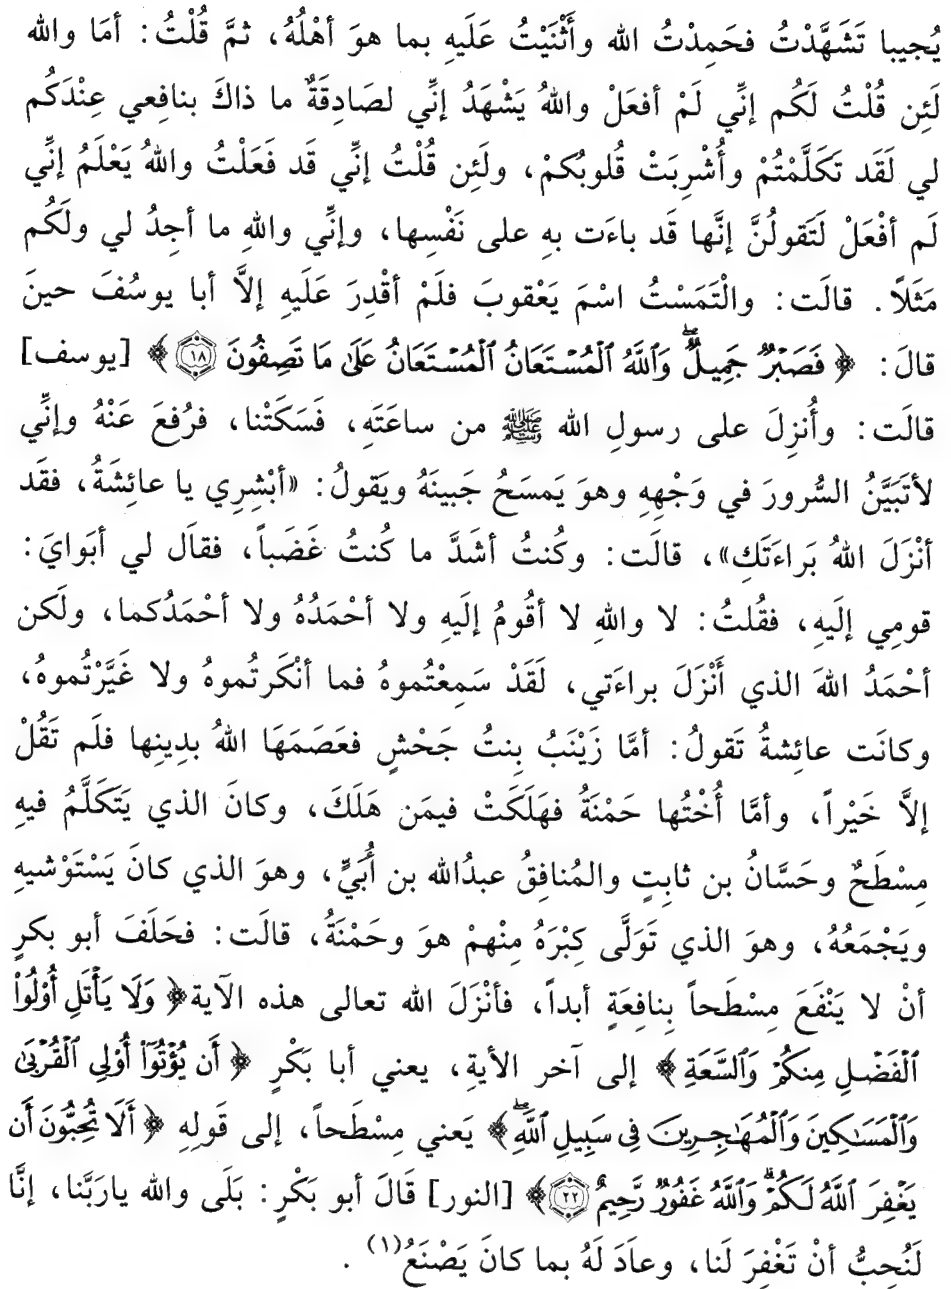 يُجيبا تَشَهَّدْتُ فحَمِدْتُ الله وأَثْنَيْتُ عَلَيهِ بما هوَ أهْلُهُ، ثمَّ قُلْتُ: أمَا والله
لَئِن قُلْتُ لَكُم إنِّي لَمْ أفعَلْ واللهُ يَشْهَدُ إنِّي لصَادِقَةٌ ما ذاكَ بنافِعي عِنْدَكُم
لي لَقَد تَكَلَّمْتُمْ وأُشْرِبَتْ قُلوبُكمْ، ولَئِن قُلْتُ إنِّي قَد فَعَلْتُ واللهُ يَعْلَمُ إنِّي
لَم أفْعَلْ لَتَقولُنَّ إنَّها قَد باءَت بهِ على نَفْسِها، وإنِّي واللهِ ما أجِدُ لي ولَكُم
مَثَلاً. قالَت: والْتَمَسْتُ اسْمَ يَعْقوبَ فلَمْ أقْدِرَ عَلَيهِ إلاَّ أبا يوسُفَ حينَ
قالَ: ﴿ فَصَبْرٌ جَمِيلٌ ۖ وَٱللَّهُ ٱلْمُسْتَعَانُ ٱلْمُسْتَعَانُ عَلَىٰ مَا تَصِفُونَ ١٨ ﴾ [يوسف]
قالَت: وأُنزِلَ على رسولِ الله ﷺ من ساعَتَهِ، فَسَكَتْنا، فرُفِعَ عَنْهُ وإنِّي
لأتَبَيَّنُ السُّرورَ في وَجْهِهِ وهوَ يَمسَحُ جَبينَهُ ويَقولُ: «أبْشِرِي يا عائِشَةُ، فقَد
أنْزَلَ اللهُ بَراءَتَكِ»، قالَت: وكُنتُ أشَدَّ ما كُنتُ غَضَباً، فقالَ لي أبَوايَ:
قومِي إلَيهِ، فقُلتُ: لا واللهِ لا أقُومُ إلَيهِ ولا أحْمَدُهُ ولا أحْمَدُكما، ولَكن
أحْمَدُ اللهَ الذي أَنْزَلَ براءَتي، لَقَدْ سَمِعْتُموهُ فما أنْكَرتُموهُ ولا غَيَّرْتُموهُ،
وكانَت عائِشةُ تَقولُ: أمَّا زَيْنَبُ بِنتُ جَحْشٍ فعَصَمَهَا اللهُ بدِينِها فلَم تَقُلْ
إلاَّ خَيْراً، وأمَّا أُخْتُها حَمْنَةُ فهَلَكَتْ فيمَن هَلَكَ، وكانَ الذي يَتَكَلَّمُ فيهِ
مِسْطَحٌ وحَسَّانُ بن ثابِتٍ والمُنافِقُ عبدُالله بن أُبَيٍّ، وهوَ الذي كانَ يَسْتَوْشيهِ
ويَجْمَعُهُ، وهوَ الذي تَوَلَّى كِبْرَهُ مِنْهمْ هوَ وحَمْنَةُ، قالَت: فحَلَفَ أبو بكرٍ
أنْ لا يَنْفَعَ مِسْطَحاً بِنافِعَةٍ أبداً، فأنْزَلَ الله تعالى هذه الآية﴿ وَلَا يَأْتَلِ أُوْلُواْ
ٱلْفَضْلِ مِنكُمْ وَٱلسَّعَةِ ﴾ إلى آخر الأيةِ، يعني أبا بَكْرٍ ﴿ أَن يُؤْتُوٓاْ أُوْلِي ٱلْقُرْبَىٰ
وَٱلْمَسَٰكِينَ وَٱلْمُهَٰجِرِينَ فِي سَبِيلِ ٱللَّهِ ۖ ﴾ يَعني مِسْطَحاً، إلى قَولِهِ ﴿ أَلَا تُحِبُّونَ أَن
يَغْفِرَ ٱللَّهُ لَكُمْ ۗ وَٱللَّهُ غَفُورٌ رَّحِيمٌ ٢٢ ﴾ [النور] قَالَ أبو بَكْرٍ: بَلَى والله يارَبَّنا، إنَّا
لَنُحِبُّ أنْ تَغْفِرَ لَنا، وعادَ لَهُ بما كانَ يَصْنَعُ(١) .